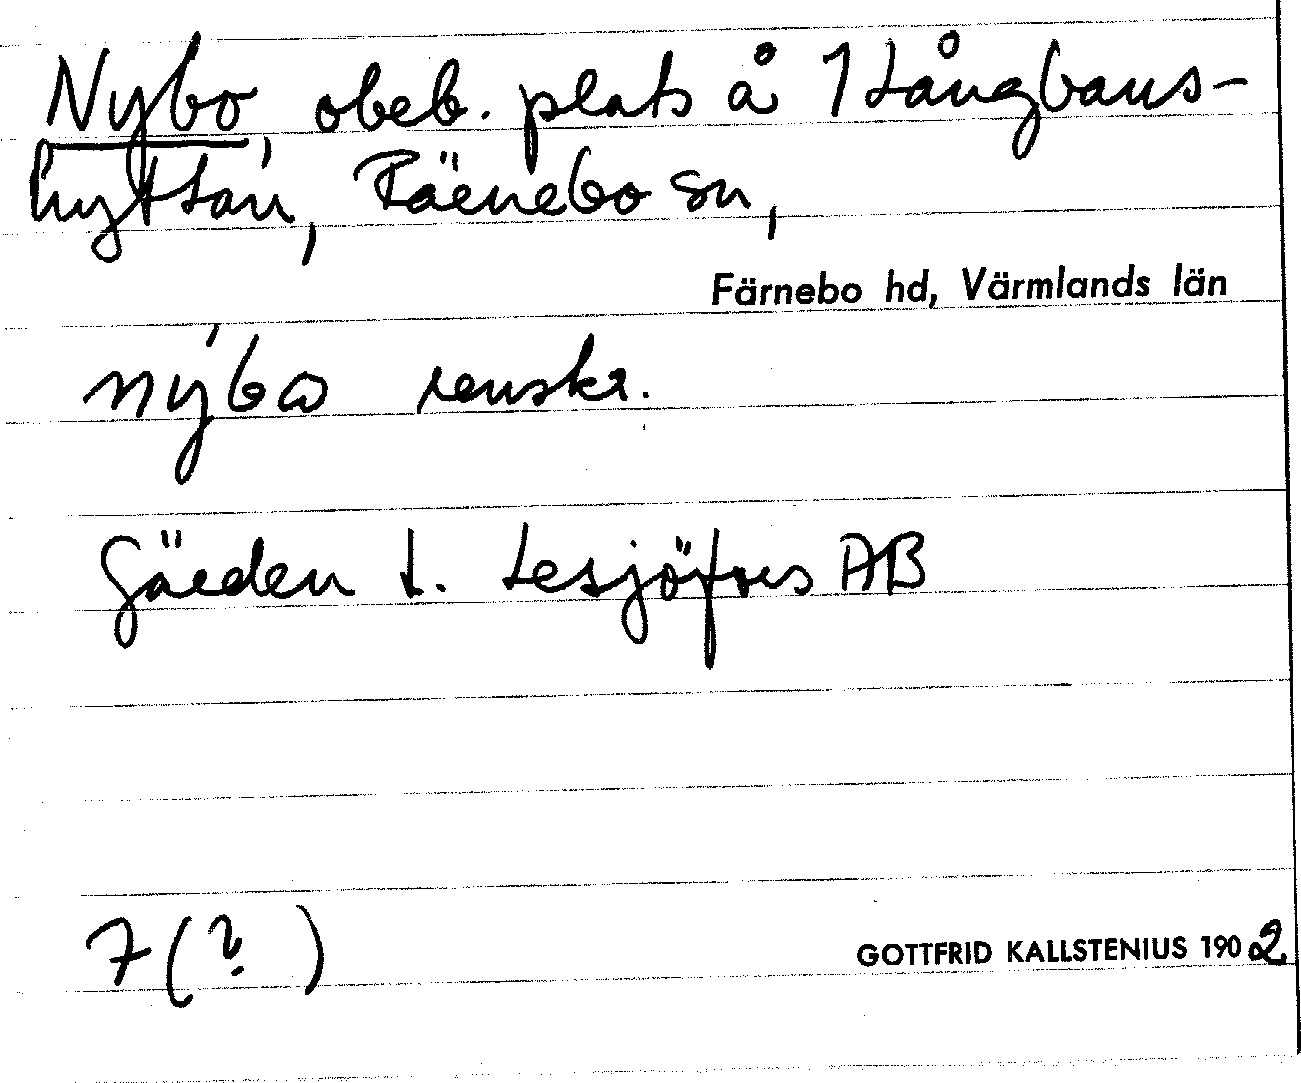 Nybo, obeb. plats å 1 Långbans-
hyttan, Färnebo sn,
Färnebo hd, Värmlands län
renskr.
Gården t. Lesjöfors AB
7 (?)
GOTTFRID KALLSTENIUS 1902